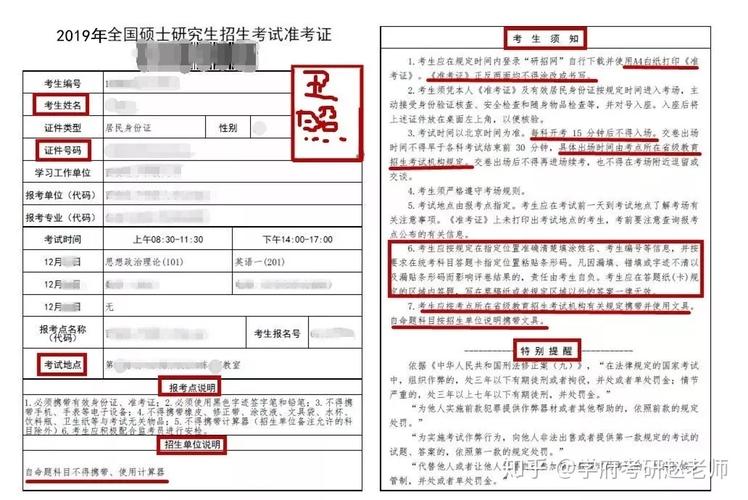 2019年全国硕士研究生招生考试准考证
考生编号
考生姓名
证件类型 居民身份证 性别
证件号码
学习工作单位
报考单位（代码）
报考专业（代码）
照
考试时间 上午08:30-11:30 下午14:00-17:00
12月 思想政治理论(101) 英语一(201)
12月
12月 无
报考点名称（代码） 考生报名号
考试地点 第 教室
报考点说明
1.必须携带有效身份证、准考证；2.必须使用黑色字迹签字笔和铅笔；3.不得携
带手机、手表等电子设备；4.不得携带橡皮、修正带、涂改液、文具袋、水杯、
饮料瓶、卫生纸等与考试无关物品；5.不得携带计算器（招生单位备注允许的科
目除外）6.考生应积极配合监考员进行安检。
招生单位说明
自命题科目不得携带、使用计算器
考生须知
1.考生应在规定时间内登录“研招网”自行下载并使用A4白纸打印《准考
证》。《准考证》正反两面均不得涂改或书写。
2.考生须凭本人《准考证》及有效居民身份证按规定时间进入考场，主
动接受身份验证核查、安全检查和随身物品检查等，并对号入座。入座后将
上述证件放在桌面左上角，以便核验。
3.考试时间以北京时间为准。每科开考 15 分钟后不得入场。交卷出场
时间不得早于各科考试结束前 30 分钟，具体出场时间由考点所在省级教育
招生考试机构规定。交卷出场后不得再进场续考，也不得在考场附近逗留或
交谈。
4.考生须严格遵守考场规则。
5.考试地点由报考点指定。考生应在考试前一天到考试地点了解考场有
关注意事项。《准考证》上未打印出考试地点的考生，考前要注意查询报考
点公布的有关信息。
6.考生应按规定在指定位置准确清楚填涂姓名、考生编号等信息，并按
要求在统考科目答题卡指定位置粘贴条形码。凡因漏填、错填或字迹不清以
及漏贴条形码而影响评卷结果的，责任由考生自负。考生应在答题纸(卡)规
定的区域内答题，写在草稿纸或者规定区域以外的答案一律无效。
7.考生应按考点所在省级教育招生考试机构有关规定携带并使用文具。
自命题科目按招生单位说明携带文具。
特别提醒
依据《中华人民共和国刑法修正案（九）》，“在法律规定的国家考试
中，组织作弊的，处三年以下有期徒刑或者拘役，并处或者单处罚金；情节
严重的，处三年以上七年以下有期徒刑，并处罚金。
“为他人实施前款犯罪提供作弊器材或者其他帮助的，依照前款的规定
处罚。
“为实施考试作弊行为，向他人非法出售或者提供第一款规定的考试的
试题、答案的，依照第一款的规定处罚。
“代替他人或者让他人
管制，并处或者单处罚金。”
知乎 @学府考研赵老师